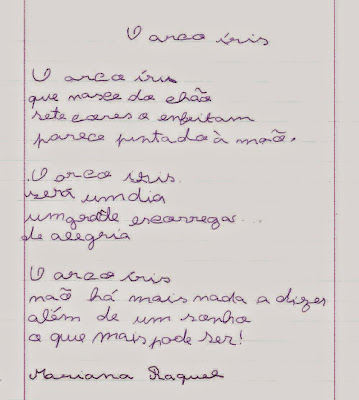 O arco íris
O arco íris
que nasce do chão
sete cores o enfeitam
parece pintado à mão.
O arco iris
será um dia
um grade escorrega...
de alegria
O arco iris
não há mais nada a dizer
além de um sonho
o que mais pode ser!
Mariana Raquel